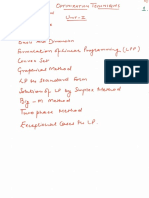 OPTIMIZATION TECHNIQUES
1
UNIT-I
Basis and Dimension
Formulation of Linear Programming (LPP)
Convex Set
Graphical Method
LP in Standard Form
Solution of LP by Simplex Method
Big-M Method
Two phase Method
Exceptional Cases in LP.